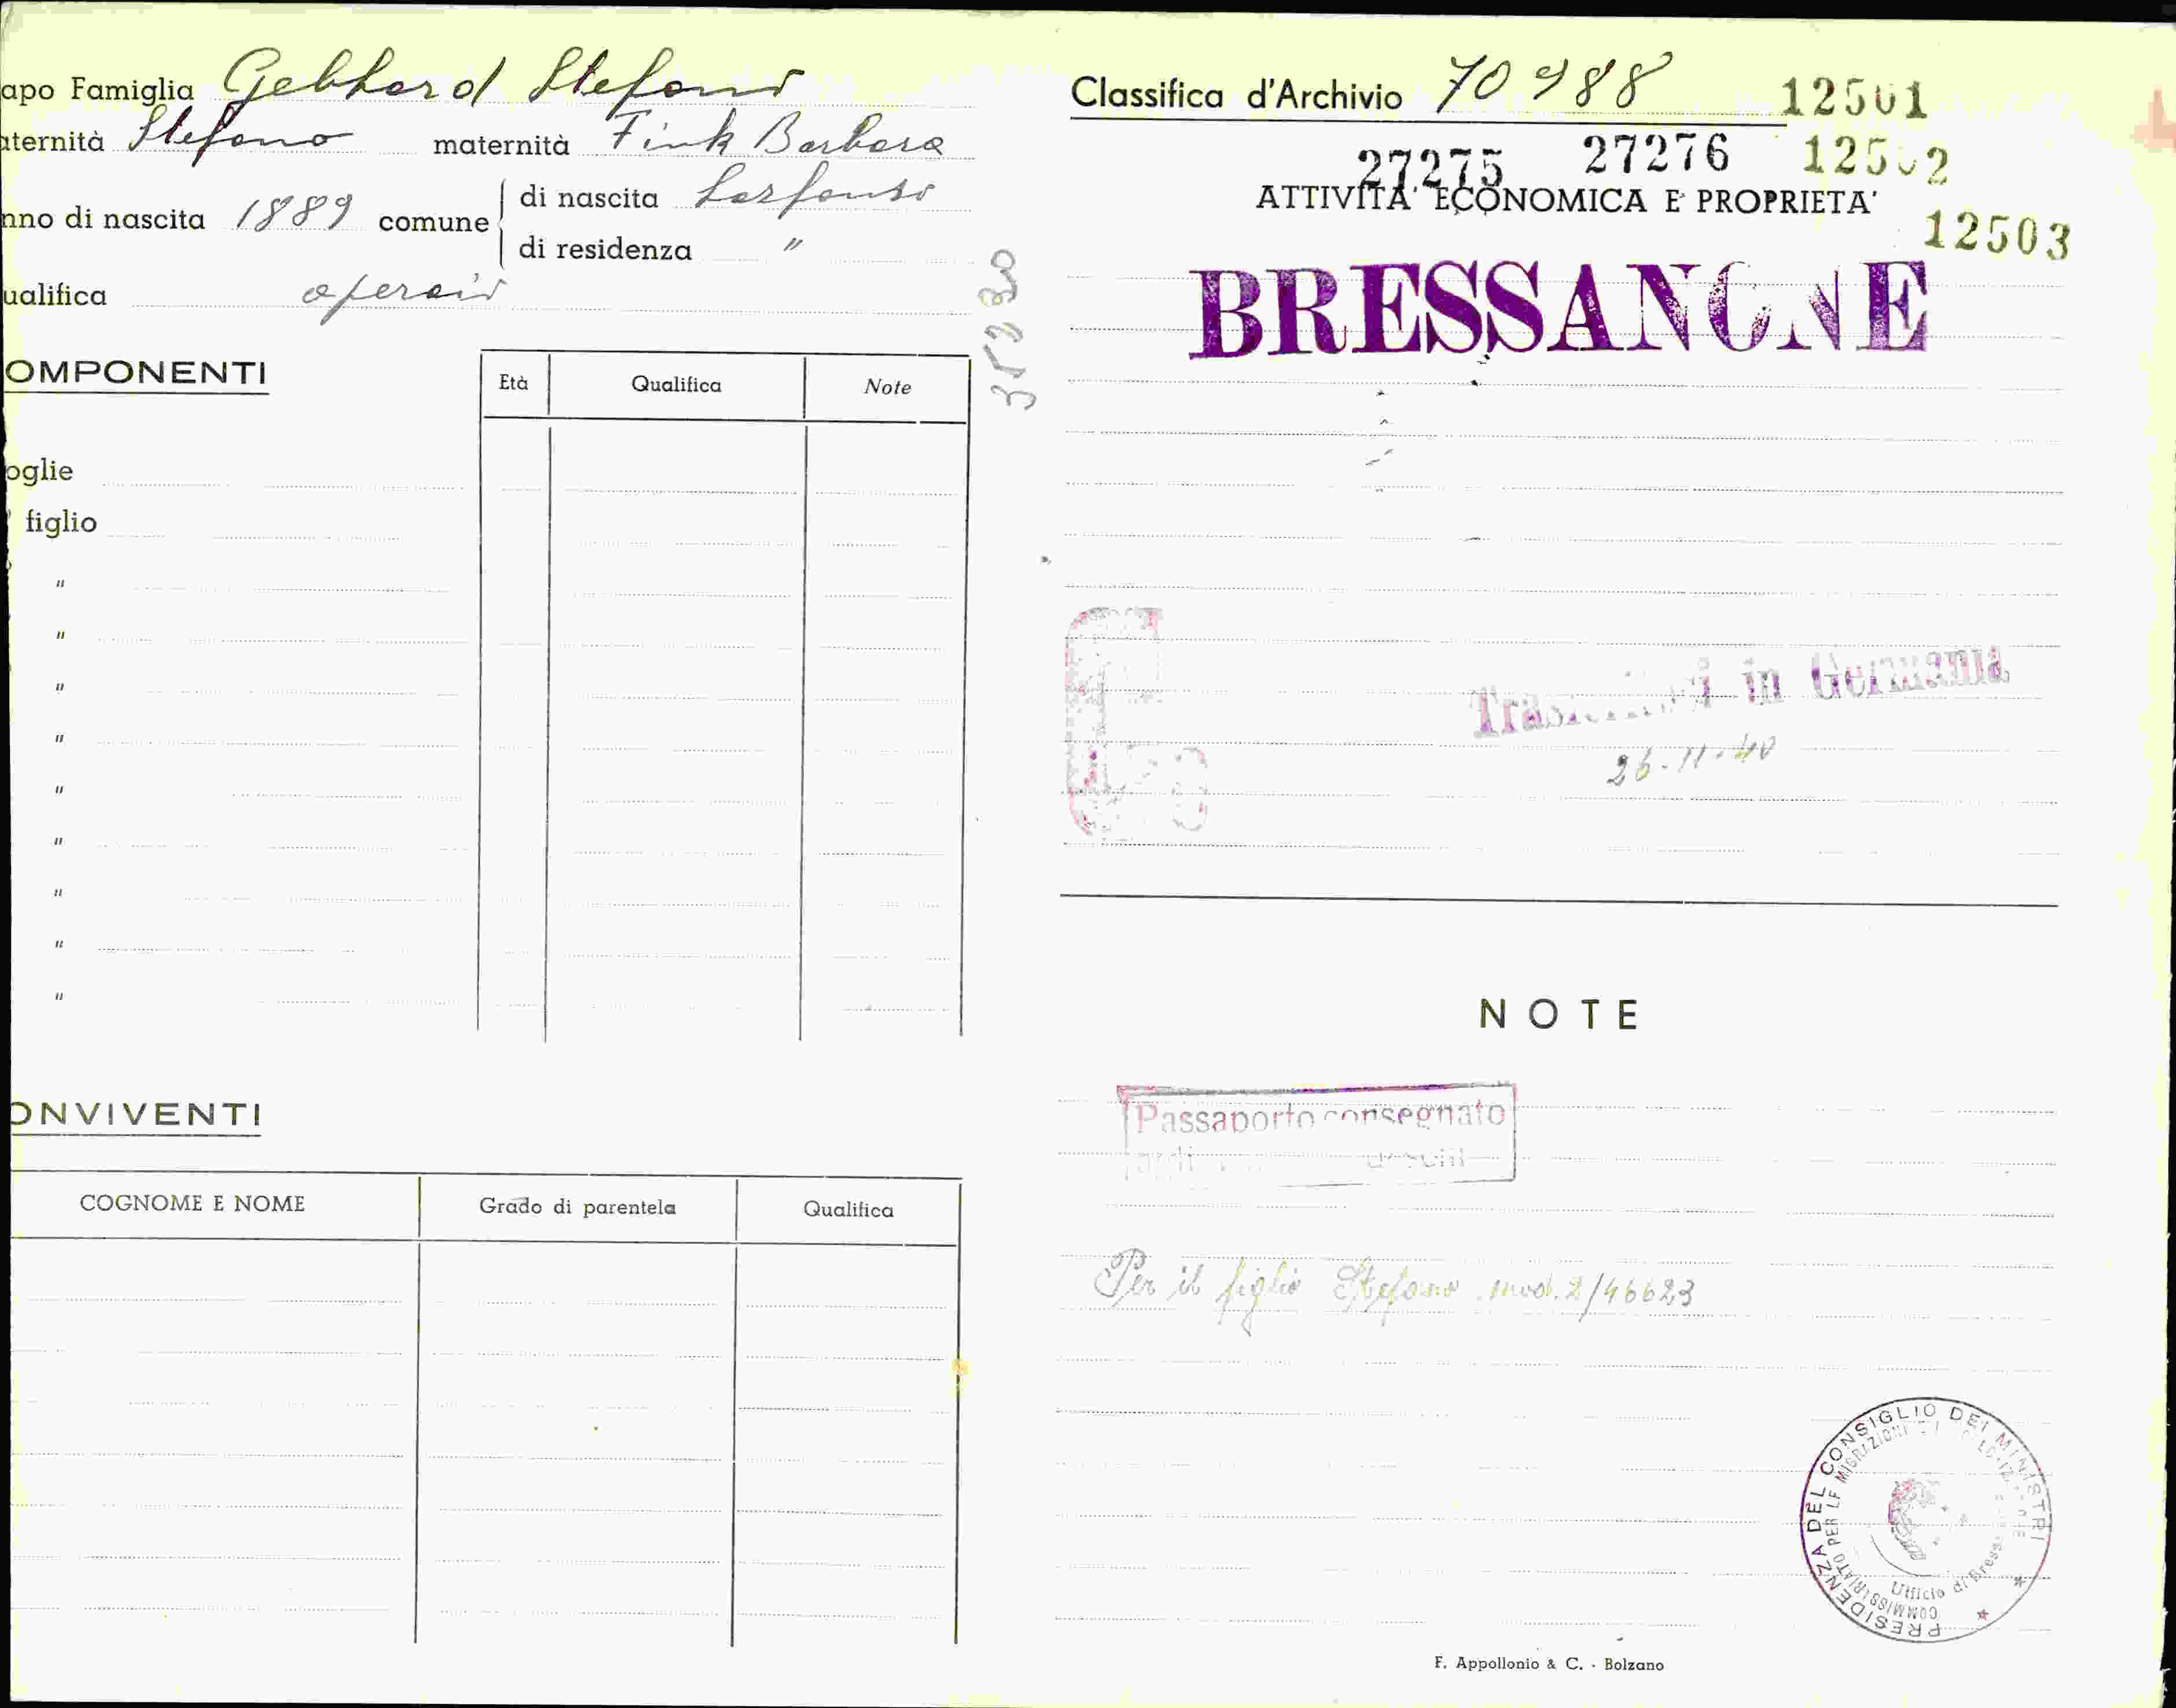 apo Famiglia Gebhard Stefano
aternità Stefano maternità Fink Barbara
nno di nascita 1889 comune di nascita Lasfonso
di residenza "
ualifica operaio
OMPONENTI
Età Qualifica Note
oglie
figlio
"
"
"
"
"
"
"
"
"
ONVIVENTI
COGNOME E NOME Grado di parentela Qualifica
Classifica d'Archivio 70988 12501
27275 27276 12502
ATTIVITA' ECONOMICA E PROPRIETA'
12503
BRESSANONE
in Germania
26-11-40
NOTE
Passaporto consegnato
Per il figlio Stefano mod. 2/46623
PRESIDENZA DEL CONSIGLIO DEI MINISTRI
COMMISSARIATO PER LE MIGRAZIONI
Ufficio di Bress
F. Appollonio & C. - Bolzano